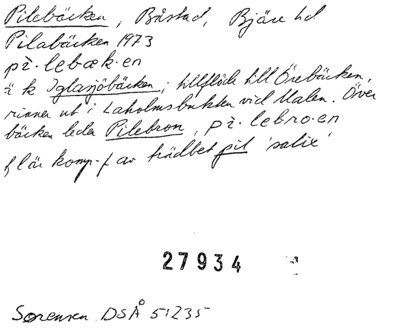 Pilebäcken, Båstad, Bjäre hd
Pilabäcken 1973
pi·lebæk·en
ä k Iglasjöbäcken; tillflöde till Örebäcken,
rinner ut i Laholmsbukten vid Malen. Över
bäcken leder Pilebron, pi·lebro·en
f lär komp-f av trädbet pil 'salix'
27934
Sørensen DSÅ 51235